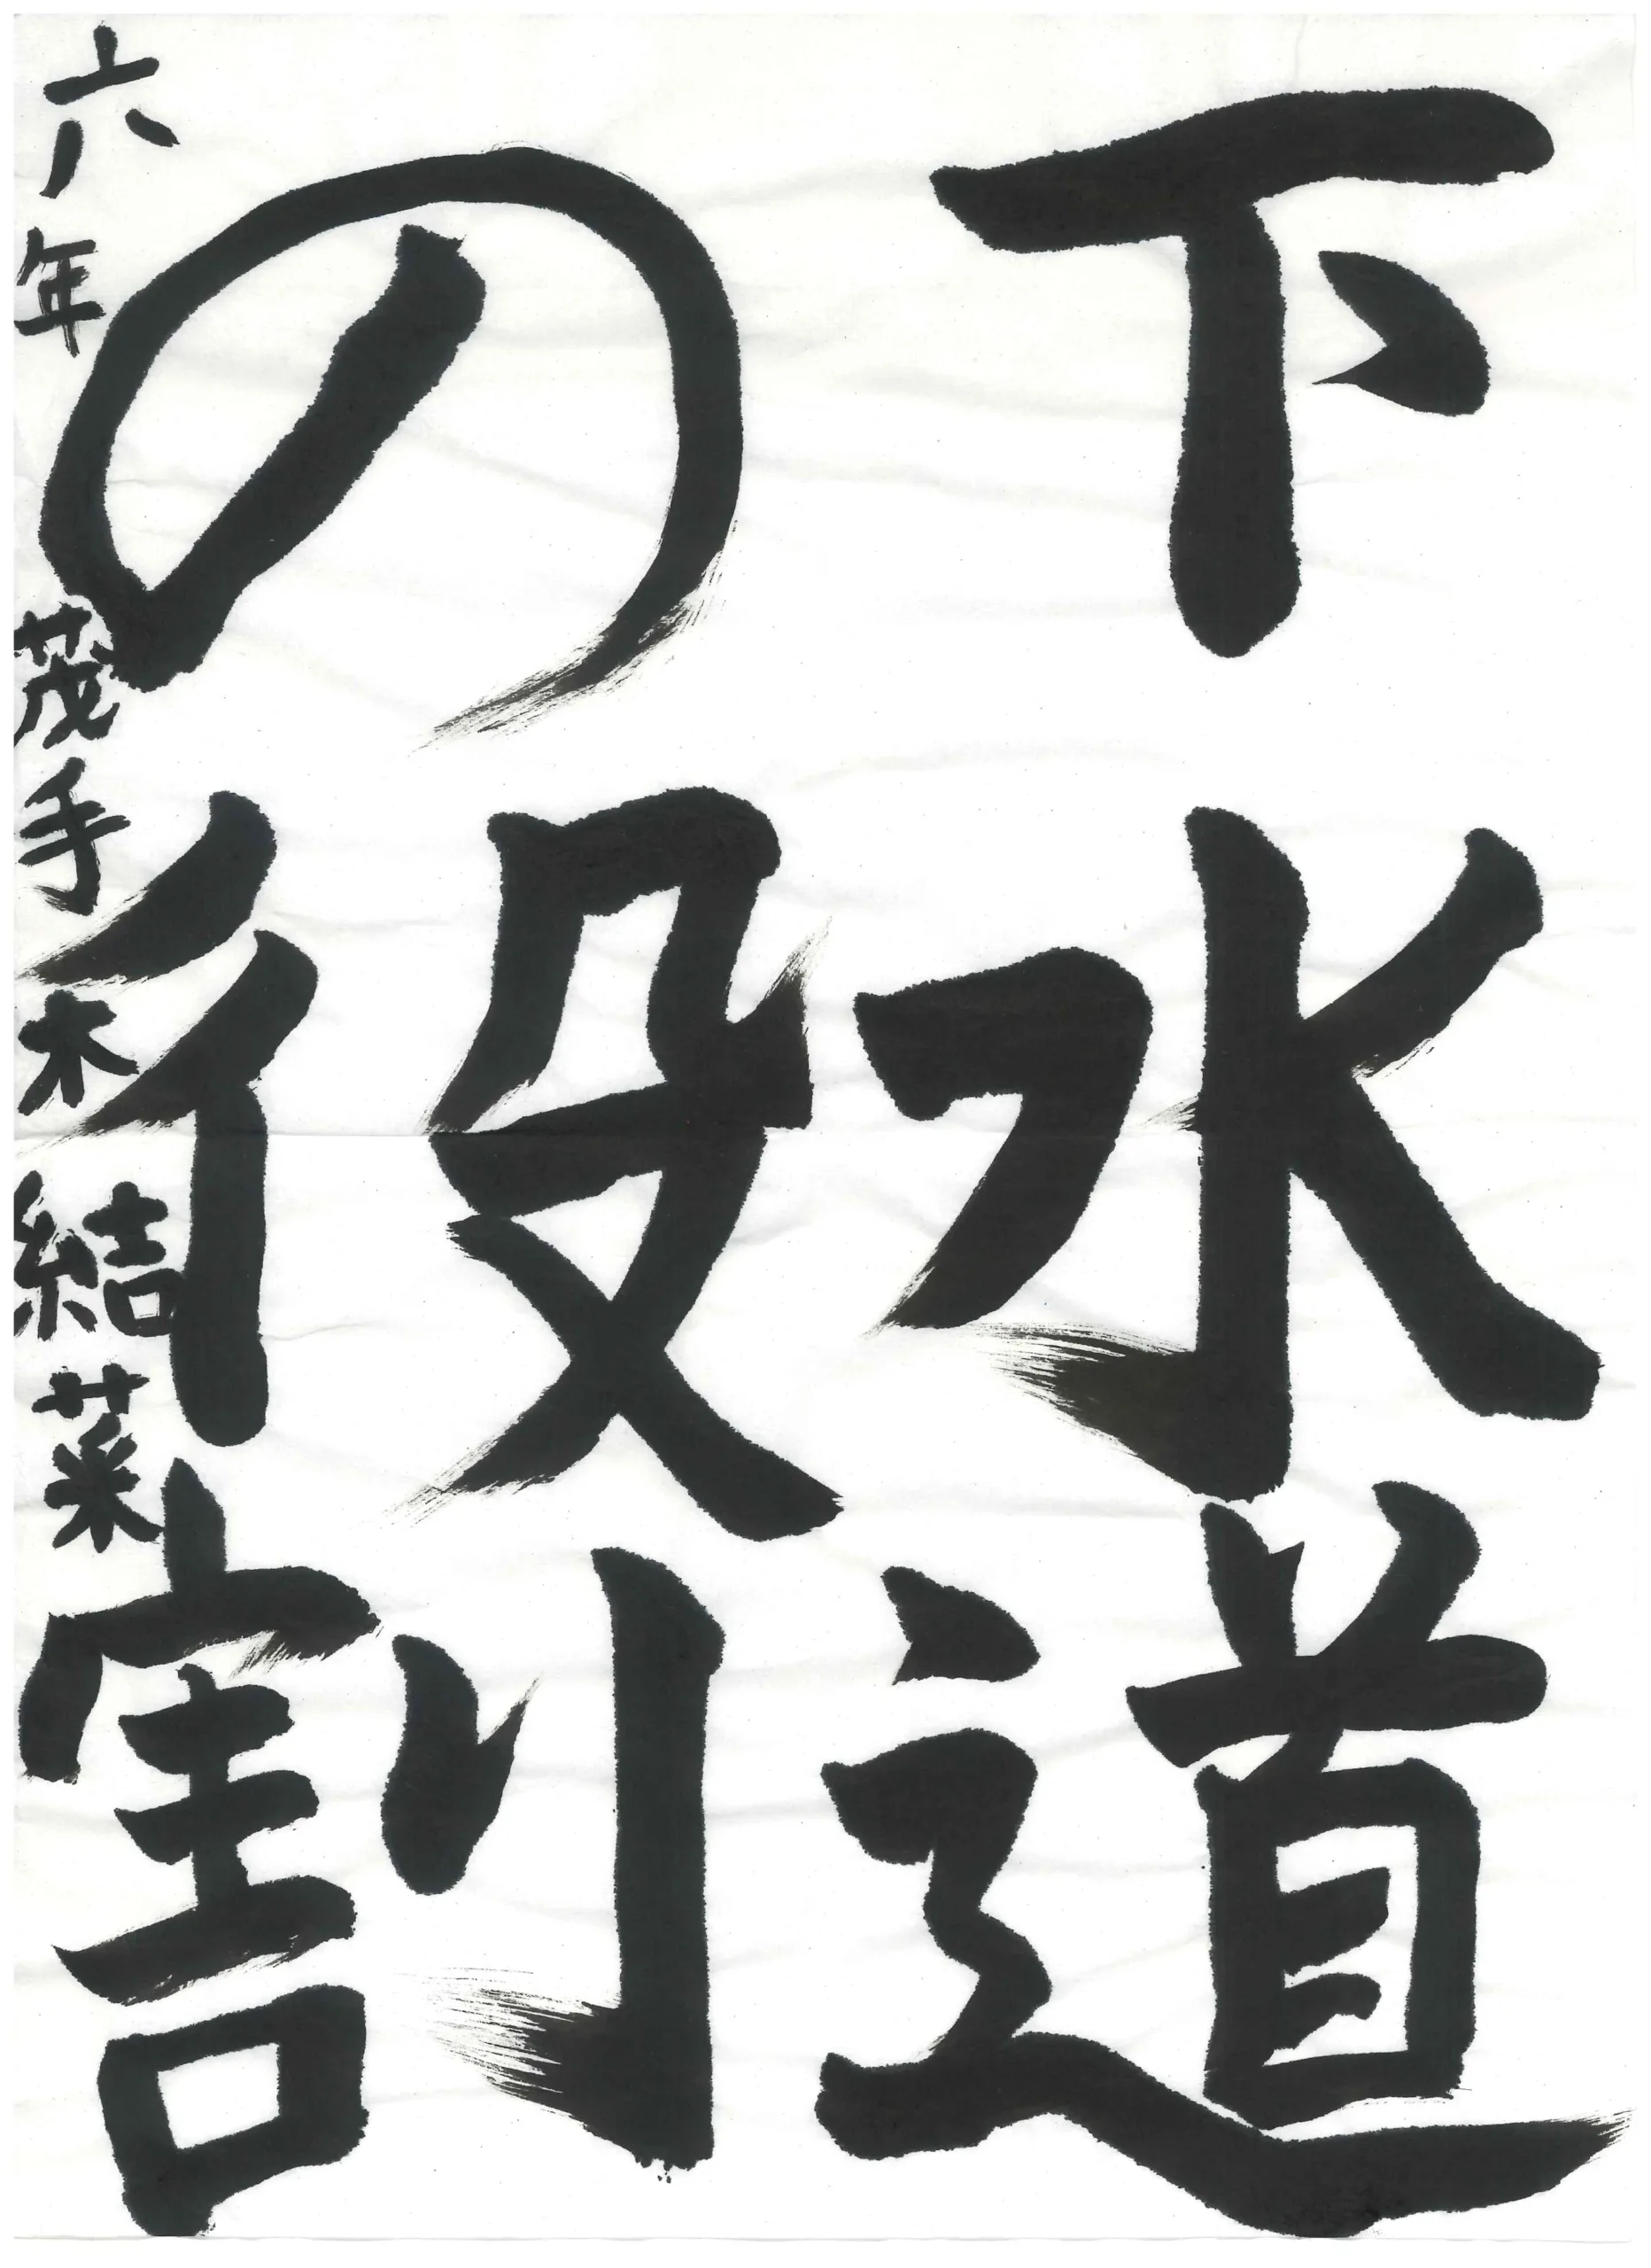 下水道
の役割
六年 茂手木 結菜